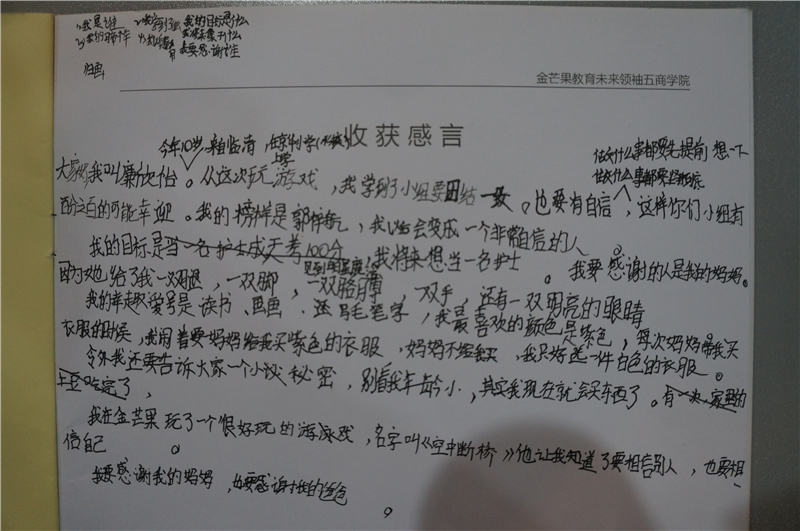 1、我是谁 我的目标是什么
我要感谢谁
归画
金芒果教育未来领袖五商学院
收获感言
今年10岁，来自临清，在京华中学
上学
做什么事都要先提前想一下
做什么事都要
大家好我叫廉欣怡。从这次玩游戏，我学到了小组要团结一致。也要有自信，这样你们小组有
百分之百的可能幸迎。我的榜样是郭梓航，我以后会变成一个非常自信的人。
我的目标是当一名护士成天考100分，我将来想当一名护士。我要感谢的人是我的妈妈。
因为她给了我一双腿，一双脚，一双胳膊，双手，还有一双明亮的眼睛
我的幸趣爱号是读书、画画、还写毛笔字，我最喜欢的颜色是紫色，每次妈妈带我买
衣服的时候，我闹着要妈妈给我买紫色的衣服，妈妈不给我买，我只好选一件白色的衣服。
令外我还要告诉大家一个小秘密，别看我年龄小，其实我现在就会买东西了。有一次家里的
吃完了，
我在金芒果玩了一个很好玩的游戏，名字叫《空中断桥》他让我知道了要相信别人，也要相
信自己。
我要感谢我的妈妈，也要感谢我的爸爸
9